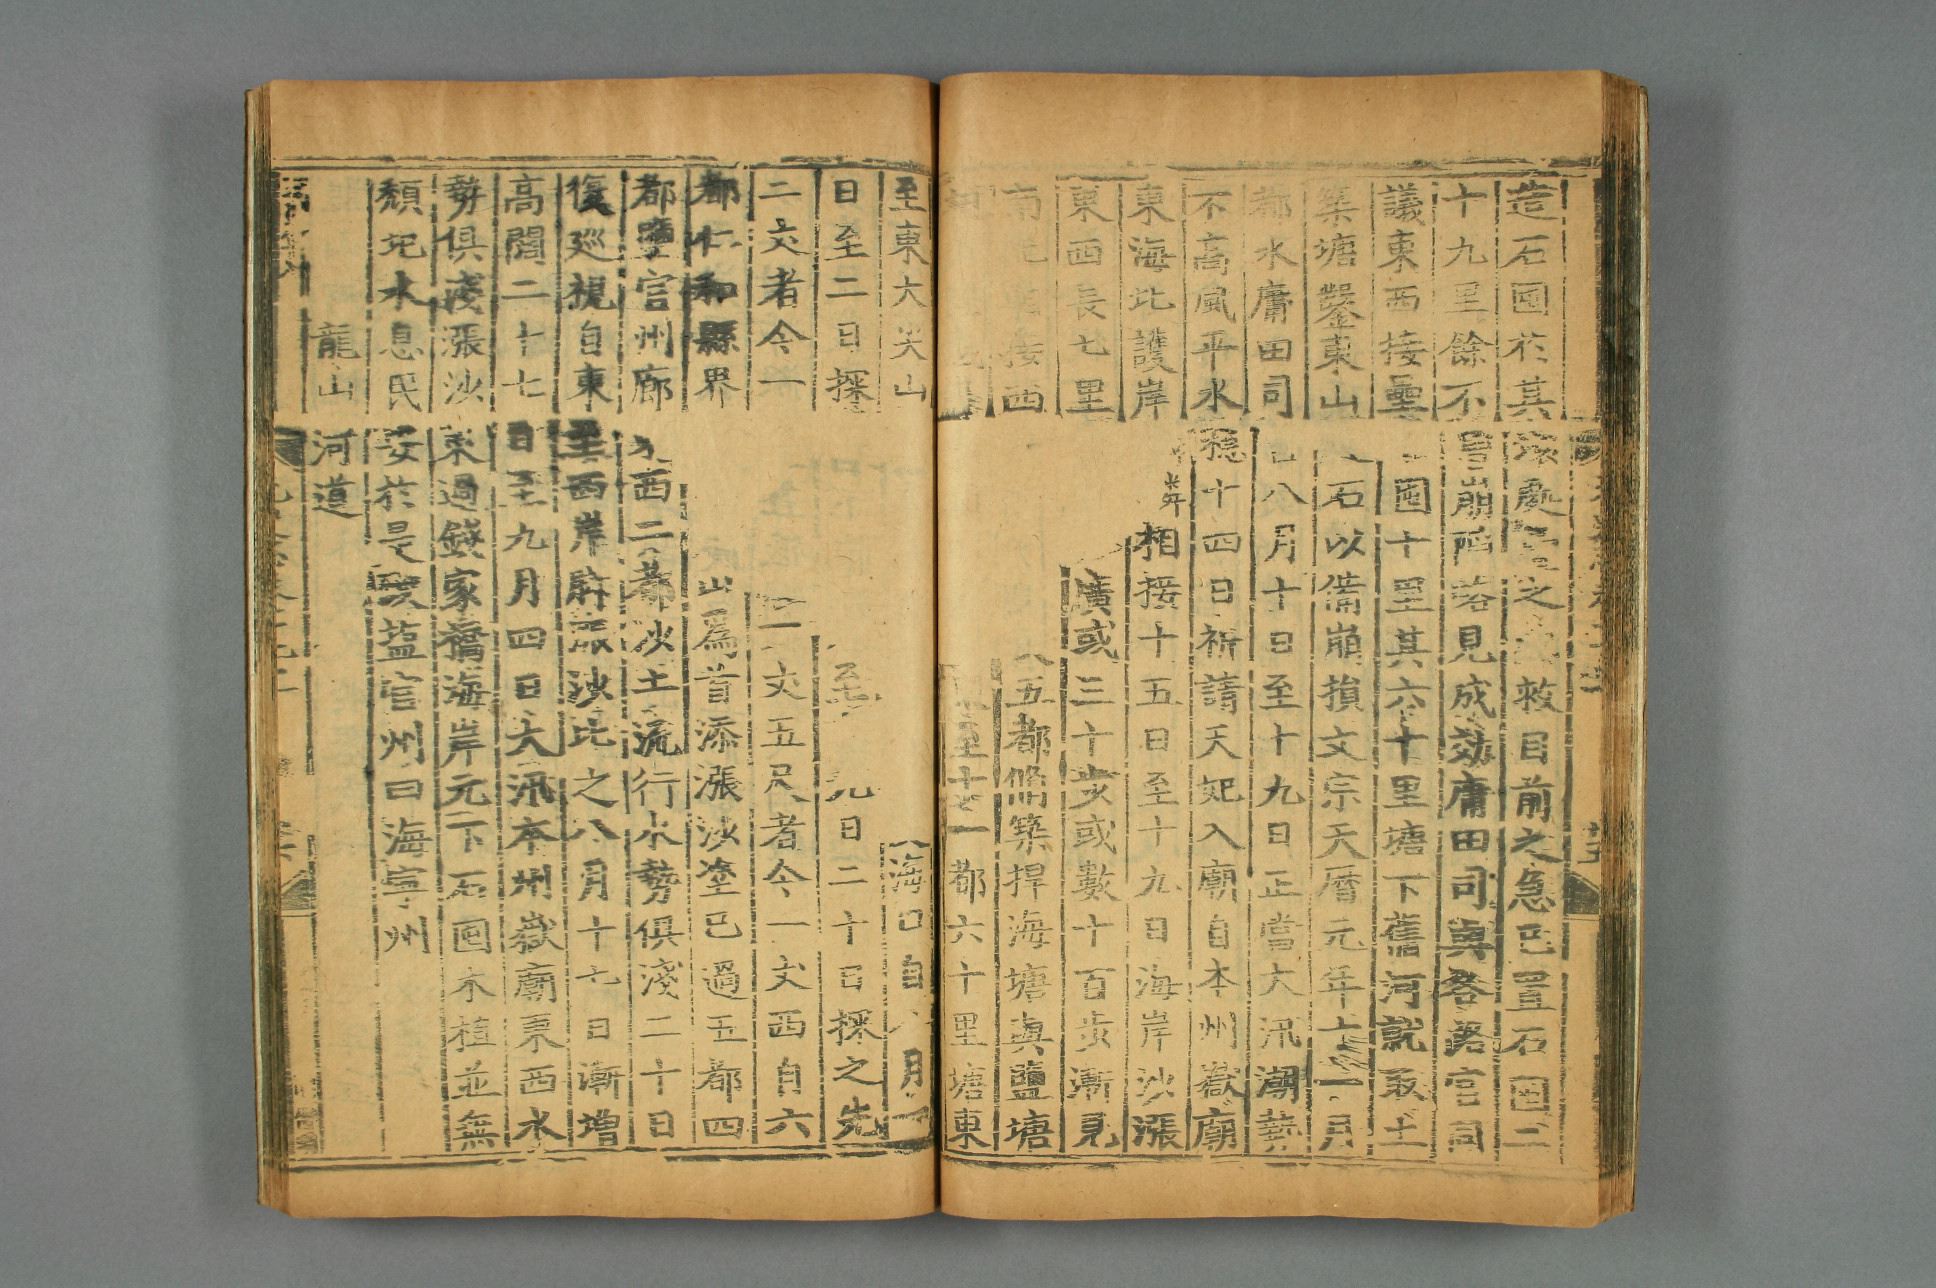 造石囤於其壞處疊之以救目前之急已置石囤二
十九里餘不曾崩陷畧見成効庸田司與各路官同
議東西接壘石囤十里其六十里塘下舊河就取土
築塘鑿東山之石以備崩損文宗天曆元年十一月
都水庸田司言八月十日至十九日正當大汛潮勢
不高風平水穩十四日祈請天妃入廟自本州嶽廟
東海北護岸鱗相接十五日至十九日海岸沙漲
東西長七里廣或三十步或數十百步漸見
南北接西五都修築捍海塘與鹽塘
至十一都六十里塘東
至東大尖山海口自八月一
日至二日探至九日二十日探之先
二丈者今一丈五尺者今一丈西自六
都仁和縣界山為首添漲沙塗已過五都四
都鹽官州廊東西二都沙土流行水勢俱淺二十日
復巡視自東至西岸脚漲沙比之八月十七日漸增
高闊二十七日至九月四日大汛本州嶽廟東西水
勢俱淺漲沙東過錢家橋海岸元下石囤木植並無
頹圮水息民安於是改鹽官州曰海寧州
龍山河道